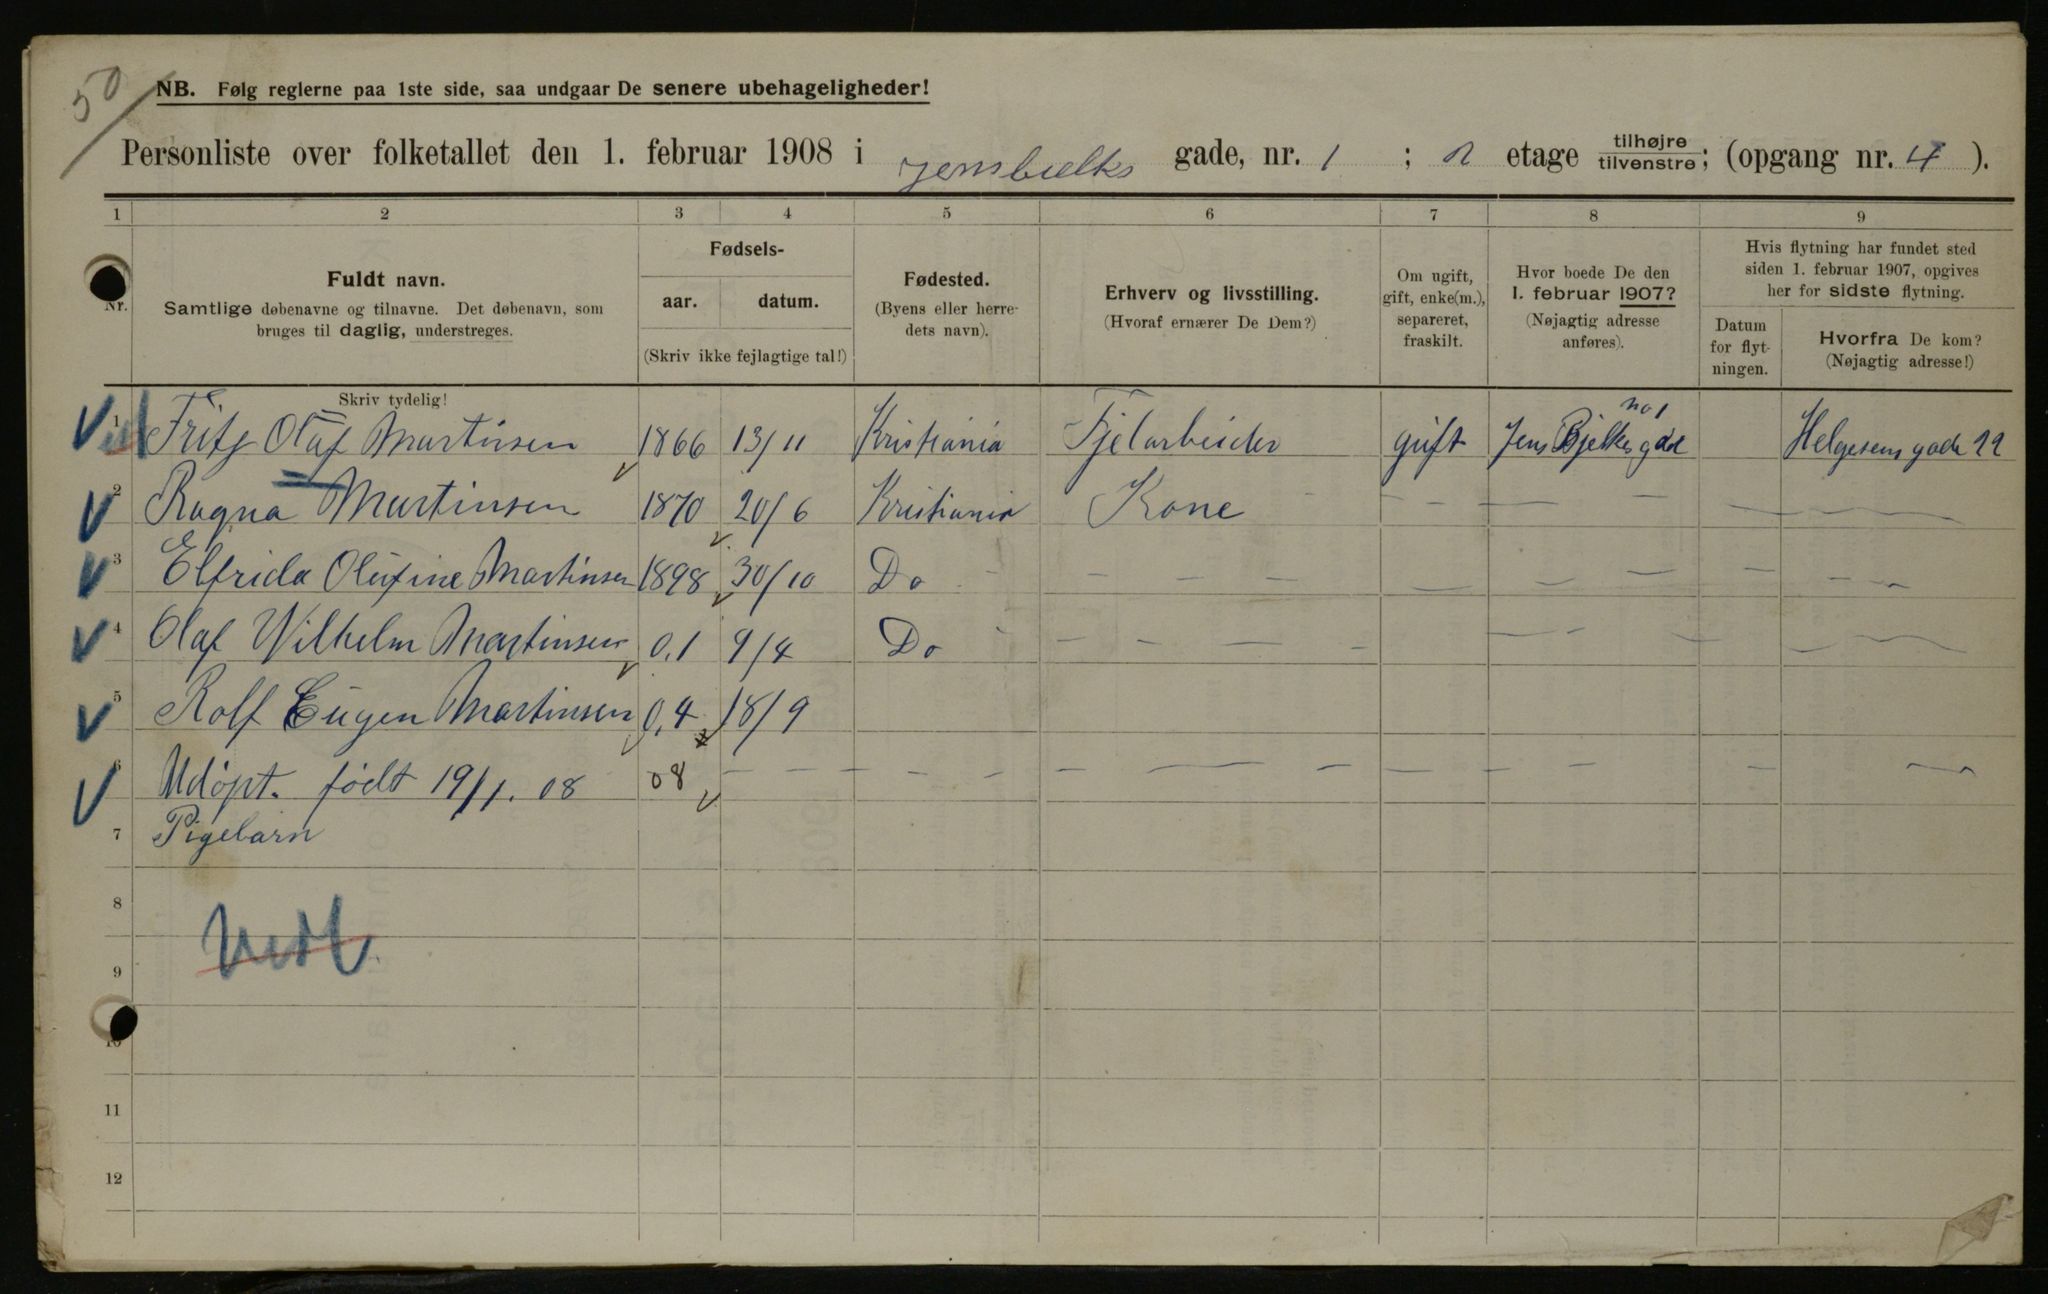 50
NB. Følg reglerne paa 1ste side, saa undgaar De senere ubehageligheder!
Personliste over folketallet den 1. februar 1908 i Jensbielks gade, nr. 1 ; 2 etage tilhøjre tilvenstre; (opgang nr. 4 ).
1 2 3 4 5 6 7 8 9
Nr.
Fuldt navn.
Samtlige døbenavne og tilnavne. Det døbenavn, som
bruges til daglig, understreges.
Fødsels-
aar. datum.
(Skriv ikke fejlagtige tal!)
Fødested.
(Byens eller herre-
dets navn).
Erhverv og livsstilling.
(Hvoraf ernærer De Dem?)
Om ugift,
gift, enke(m.),
separeret,
fraskilt.
Hvor boede De den
1. februar 1907?
(Nøjagtig adresse
anføres).
Hvis flytning har fundet sted
siden 1. februar 1907, opgives
her for sidste flytning.
Datum
for flyt-
ningen.
Hvorfra De kom?
(Nøjagtig adresse!)
Skriv tydelig!
no 1
1 Fritz Olaf Martinsen 1866 13/11 Kristiania Fjelarbeider gift Jens Bjelkes gade Helgesens gade 22
2 Ragna Martinsen 1870 20/6 Kristiania Kone — — — — —
3 Elfrida Olufine Martinsen 1898 30/10 Do — — — — — — — —
4 Olaf Wilhelm Martinsen 0,1 9/4 Do — — — — — — — —
5 Rolf Eugen Martinsen 0,4 18/9
6 Udøpt. født 19/1. 08 08 — — — — — — — — — — —
7 Pigebarn
8
9
10
11
12